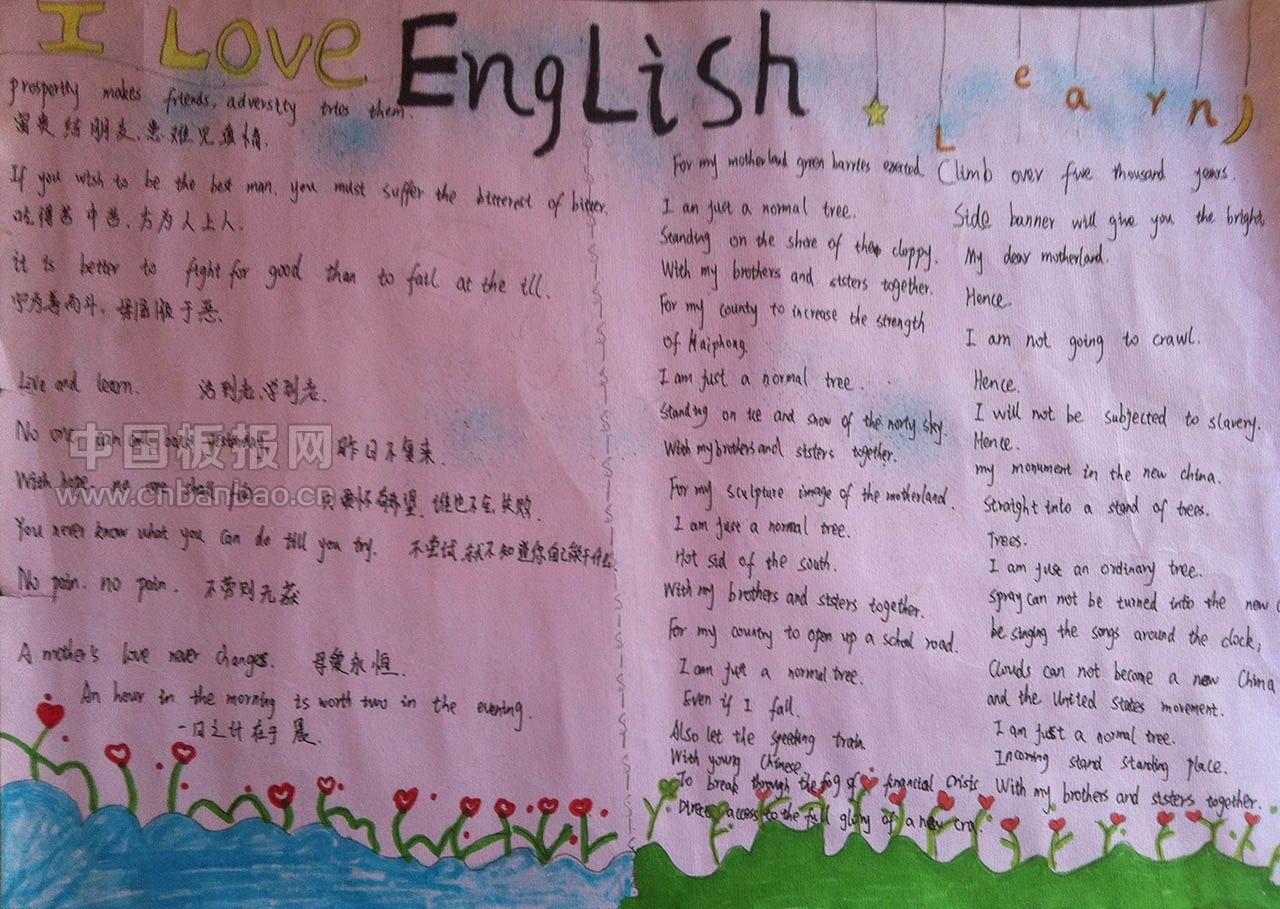 I Love English
Learn
prosperity makes friends, adversity tries them.
富贵结朋友,患难见真情.
If you wish to be the best man, you must suffer the bitterest of bitter.
吃得苦中苦,方为人上人.
it is better to fight for good than to fall at the ill.
宁为善而斗,屈服于恶.
Live and learn. 活到老,学到老.
No one can call back yesterday 昨日不复来.
With hope, no one shall 只要怀希望,谁也不会失败.
You never know what you can do till you try. 不尝试,就不知道你自己能干什么
No pain. no pain. 不劳则无获
A mother's love never changes. 母爱永恒.
An hour in the morning is worth two in the evening.
一日之计在于晨.
中国板报网
www.cnbanbao.cn
For my motherland green barries exected.
I am just a normal tree.
Standing on the shore of the choppy.
With my brothers and sisters together.
For my county to increase the strength
of Haiphong
I am just a normal tree.
Standing on ice and snow of the norty sky.
With my brothers and sisters together.
For my sculpture image of the motherland.
I am just a normal tree.
Hot sid of the south.
With my brothers and sisters together.
For my country to open up a school road.
I am just a normal tree.
Even if I fall.
Also let the speeting train
With young Chinese
To break through the fog of financial crisis
Direct access to the full glory of a new cry.
Climb over five thousand years.
Side banner will give you the bright
My dear motherland.
Hence.
I am not going to crawl.
Hence.
I will not be subjected to slavery.
Hence.
my monument in the new china.
Straight into a stand of trees.
Trees.
I am just an ordinary tree.
spray can not be turned into the new
be singing the songs around the clock,
Clouds can not become a new China
and the United States movement.
I am just a normal tree.
Incoming stand standing place.
With my brothers and sisters together.